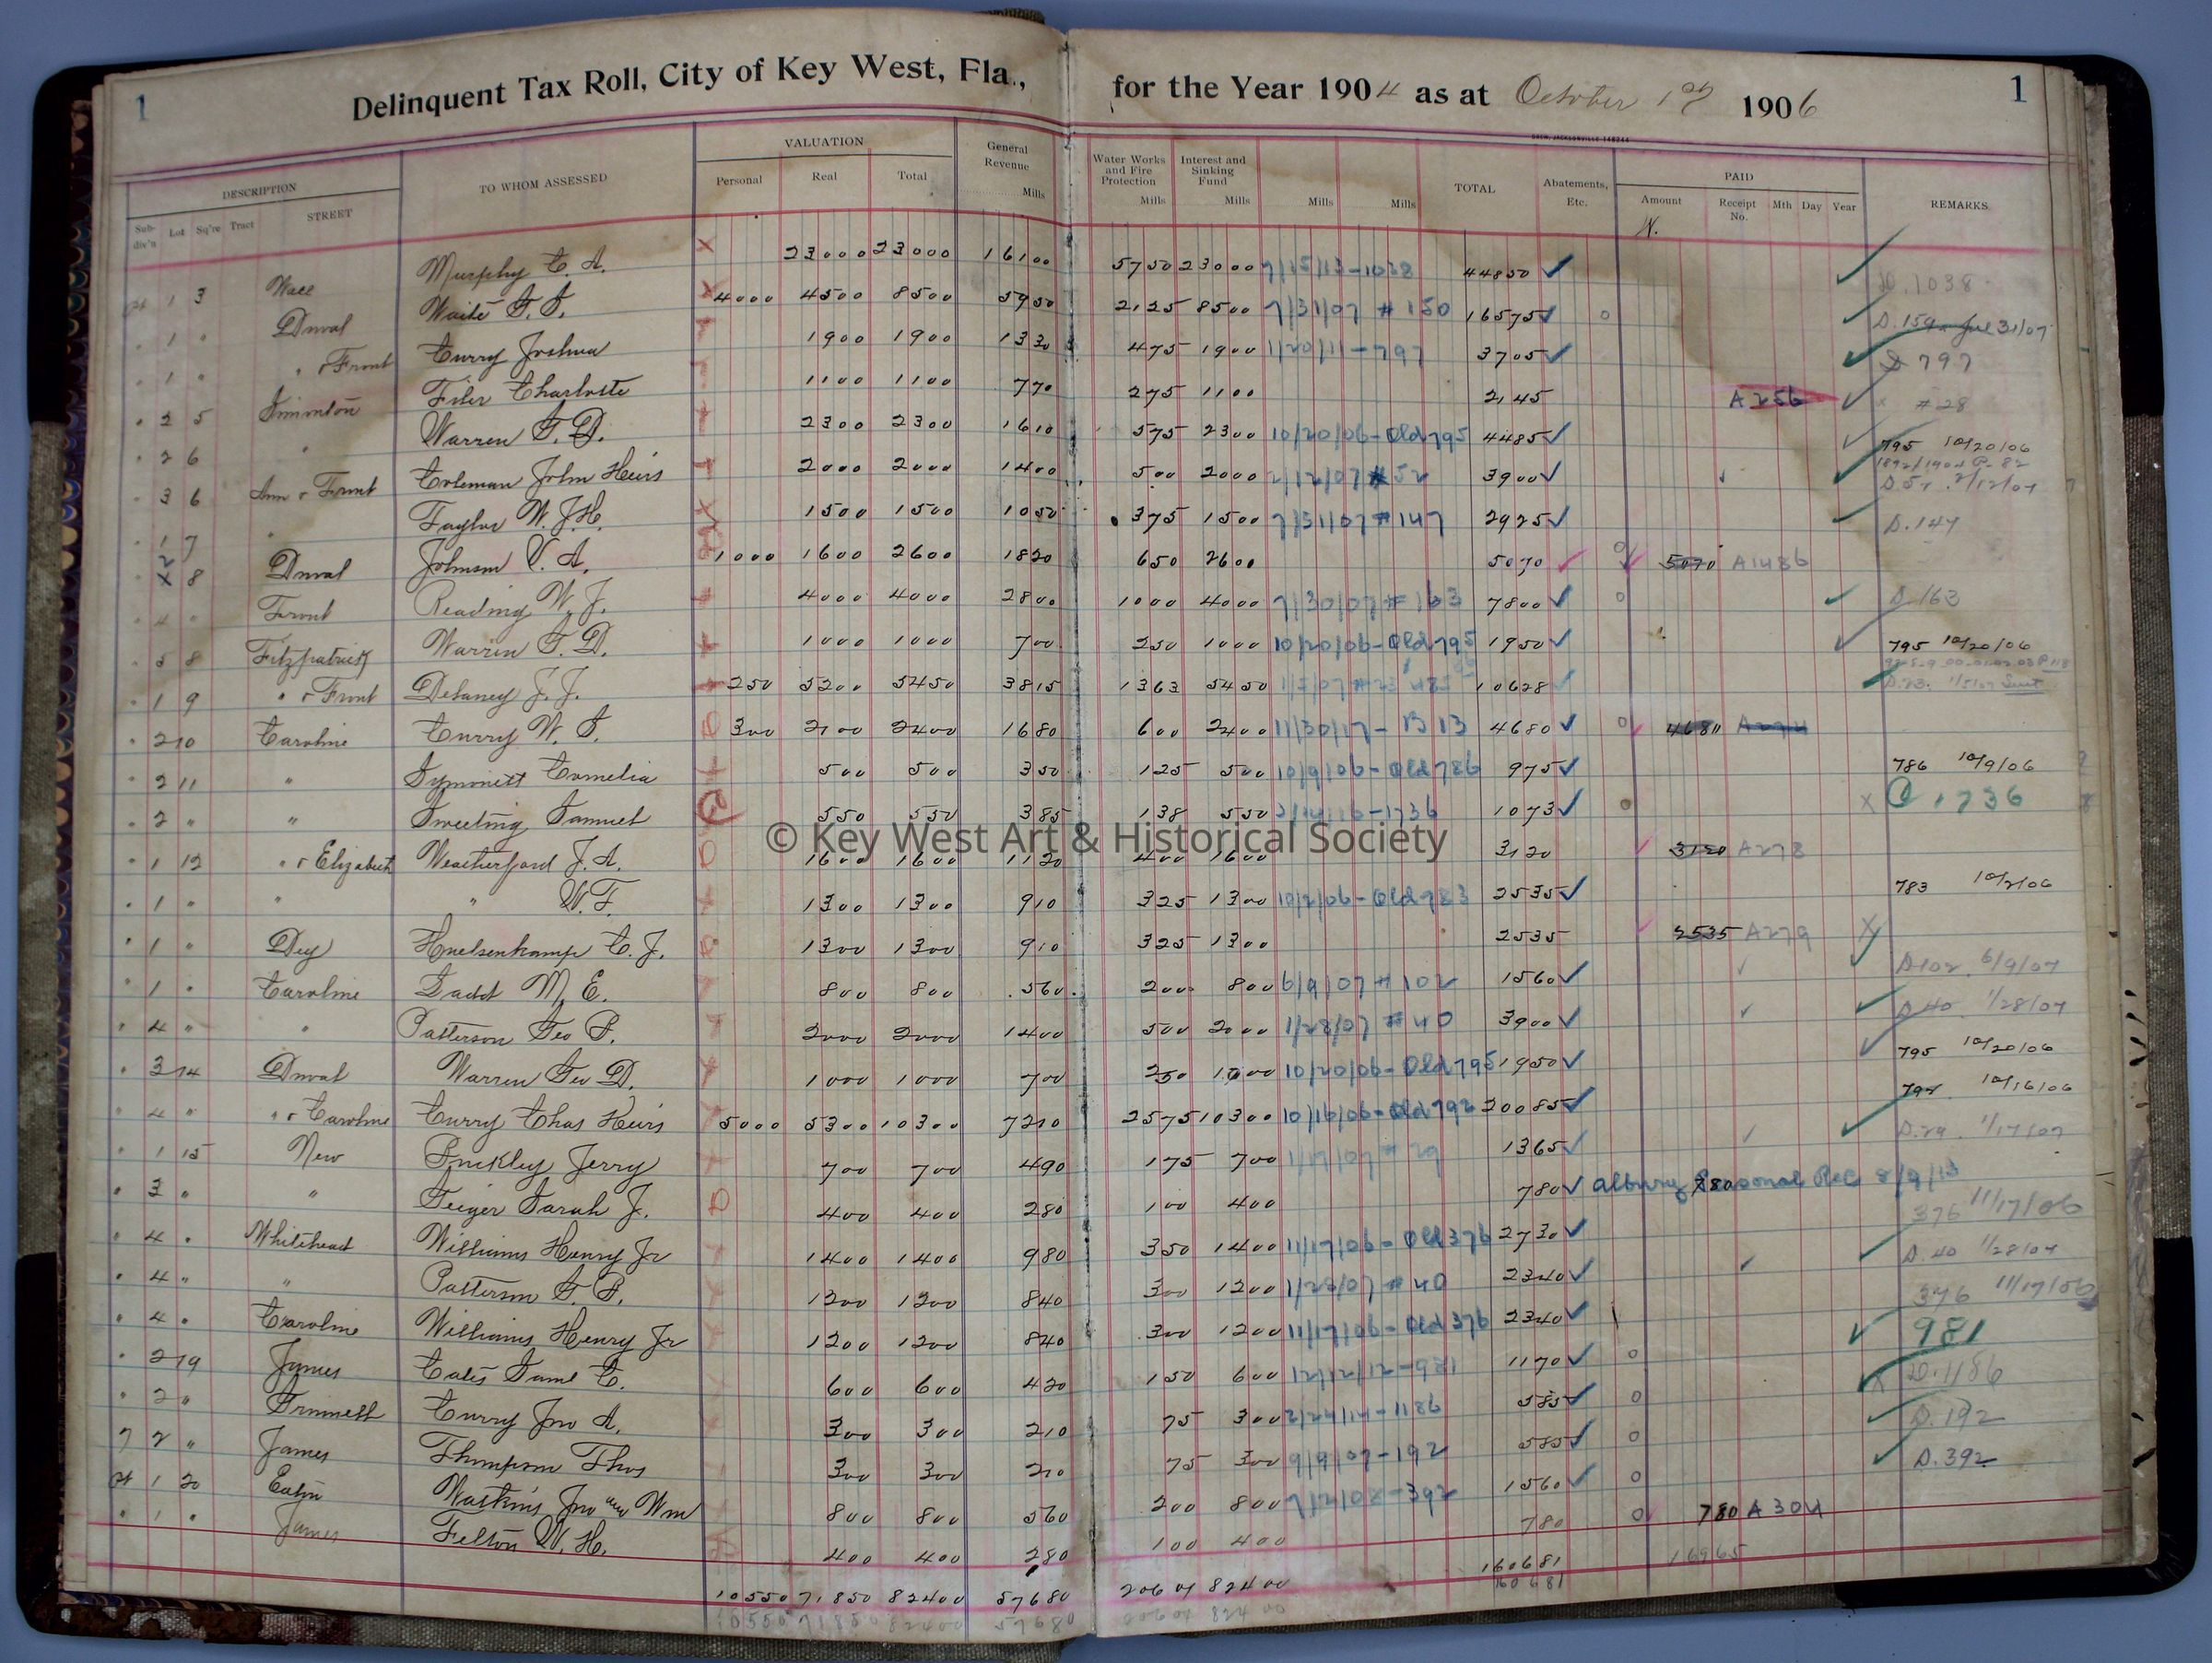 1 Delinquent Tax Roll, City of Key West, Fla., for the Year 1904 as at October 1st 1906 1
DESCRIPTION TO WHOM ASSESSED VALUATION General Revenue Mills Water Works and Fire Protection Mills Interest and Sinking Fund Mills Mills Mills TOTAL Abatements, Etc. PAID REMARKS
Sub-div'n Lot Sq're Tract STREET Personal Real Total Amount Receipt No. Mth Day Year
1 3 Wall Murphy C. A. 23000 23000 16100 5750 23000 7/15/13-1038 44850 D.1038
1 " Duval Waite T. S. 4000 4500 8500 5950 2125 8500 7/31/07 #150 16575 Jul 31/07
1 " " & Front Curry Joshua 1900 1900 1330 475 1900 1/20/11-797 3705 D 797
2 5 Simonton Filer Charlotte 1100 1100 770 275 1100 2145 A256 #28
2 6 " Warren G. D. 2300 2300 1610 575 2300 10/20/06-Old 795 4485 795 10/20/06
3 6 Ann & Front Coleman John Heirs 2000 2000 1400 500 2000 2/12/07 #52 3900 D.52 2/12/07
1 7 " Taylor W. J. H. 1500 1500 1050 375 1500 7/31/07 #147 2925 D.147
8 Duval Johnson V. A. 1000 1600 2600 1820 650 2600 5070 5070 A1486
4 " Front Reading W. J. 4000 4000 2800 1000 4000 7/30/07 #163 7800 D.163
5 8 Fitzpatrick Warren G. D. 1000 1000 700 250 1000 10/20/06-Old 795 1950 795 10/20/06
1 9 " & Front Delaney J. J. 250 5200 5450 3815 1363 5450 10628 D.23. 1/5/07
2 10 Caroline Curry W. S. 300 2100 2400 1680 600 2400 11/30/17- B 13 4680 4680
2 11 " Symonett Cornelia 500 500 350 125 500 10/9/06-Old 786 975 786 10/9/06
2 " " Sweeting Samuel 550 550 385 138 550 1073 1736
© Key West Art & Historical Society
1 12 " & Elizabeth Weatherford J. A. 1600 1600 1120 400 1600 3120 3120 A278
1 " " " W. F. 1300 1300 910 325 1300 10/2/06-Old 783 2535 783 10/2/06
1 " Dey Huelsenkamp C. J. 1300 1300 910 325 1300 2535 2535 A279
1 " Caroline Ladd M. E. 800 800 560 200 800 6/9/07 #102 1560 D102 6/9/07
4 " " Patterson Geo P. 2000 2000 1400 500 2000 1/28/07 #40 3900 D.40 1/28/07
3 14 Duval Warren Geo D. 1000 1000 700 250 1000 10/20/06-Old 795 1950 795 10/20/06
4 " " & Caroline Curry Chas Heirs 5000 5300 10300 7210 2575 10300 10/16/06-Old 792 20085 10/16/06
1 15 New Jerry 700 700 490 175 700 1/17/07 #29 1365 D.29 1/17/07
3 " " Geiger Sarah J. 400 400 280 100 400 780 Albury Personal Rec 8/9/13
4 " Whitehead Williams Henry Jr 1400 1400 980 350 1400 11/17/06-Old 376 2730 376 11/17/06
4 " " Patterson G. P. 1200 1200 840 300 1200 1/28/07 #40 2340 D.40 1/28/07
4 " Caroline Williams Henry Jr 1200 1200 840 300 1200 11/17/06-Old 376 2340 376 11/17/06
2 19 James Cates Saml C. 600 600 420 150 600 12/12/12-981 1170 981
2 " Grinnell Curry Jno A. 300 300 210 75 300 2/24/14-1186 585 D.1186
2 " James Thompson Thos 300 300 210 75 300 9/9/07-192 585 D.192
1 20 Eaton Watkins Jno and Wm 800 800 560 200 800 7/2/08-392 1560 D.392
1 " James Felton W. H. 400 400 280 100 400 780 780 A304
10550 71850 82400 57680 20601 82400 160681 16965
10550 71850 82400 57680 20601 82400 160681